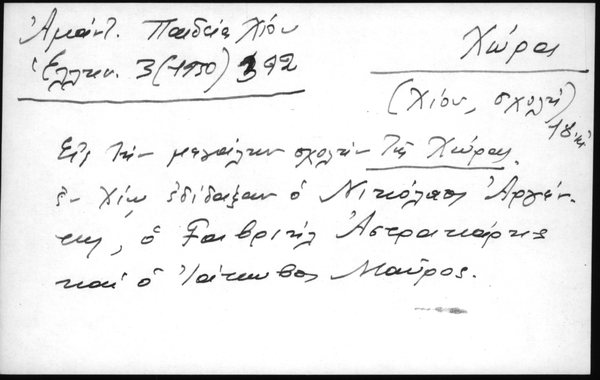 Ἀμάντ. Παιδεία Χίου
Ἑλλην. 3 (1930) 392
Χώρας
(Χίου, σχολή)
18. κἑ
Εἰς τὴν μεγάλην σχολὴν τῆς Χώρας
ἐν Χίῳ ἐδίδαξαν ὁ Νικόλαος Ἀργέν-
της, ὁ Γαβριὴλ Ἀστρακάρης
καὶ ὁ Ἰάκωβος Μαῦρος.